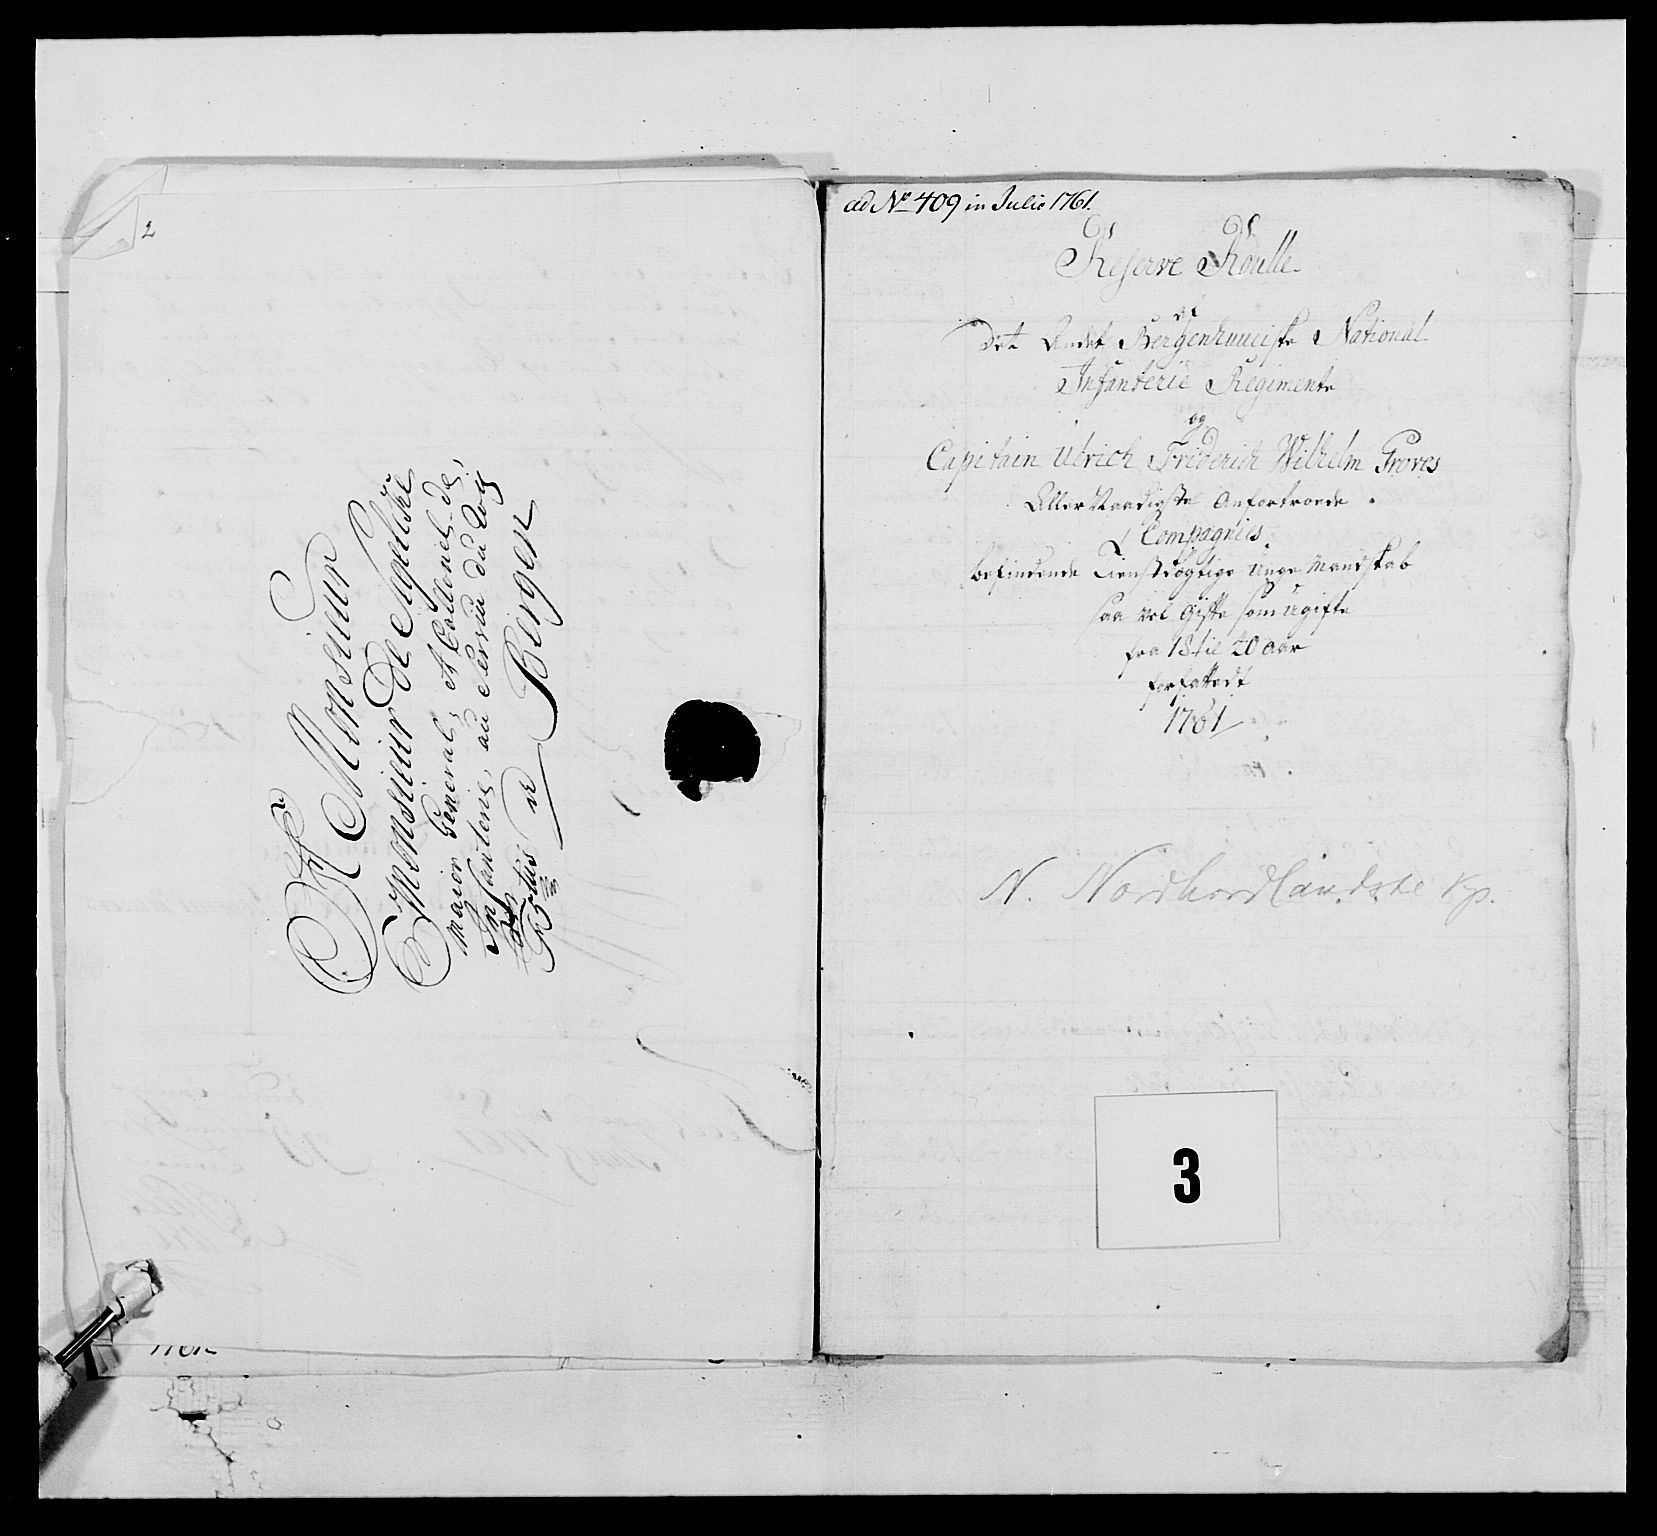 2
A Monsieur
Monsieur de
Maior General, et Collonel de,
Infanterie, au Service du Roÿ
a
Bergen
ad No 409 in Julio 1761.
Reserve Roulle
af
Det Andet Bergenhuusiske National
Infanterie Regiments
og
Capitain Ulrich Friderich Wilhelm Groves
Aller Naadigste Anfortroede
Compagnies
befindende Tienstdögtige Unge Mandskab
saa vel Gifte som Ugifte
fra 18 til 20 aar
forfattedt
1761
N. Nordhordlandske Kp.
3